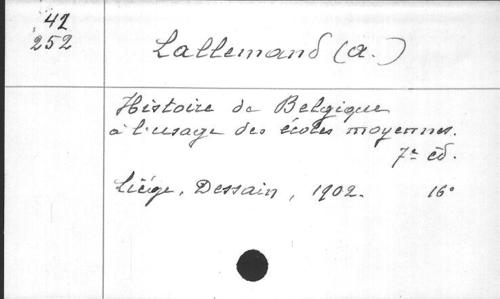 42
252
Lallemand (A.)
Histoire de Belgique
à l'usage des écoles moyennes.
7e éd.
Liége, Dessain, 1902. 16°